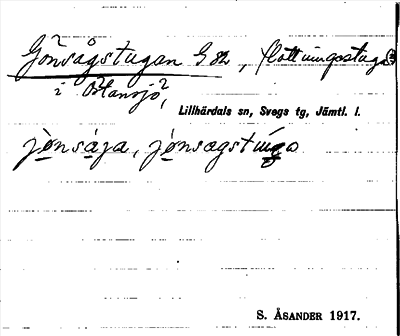 Gönsågstugan S 82, flottningsstuga
i Östansjö,
Lillhärdals sn, Svegs tg, Jämtl. l.
jònsája, jònsagstúga
S. ÅSANDER 1917.